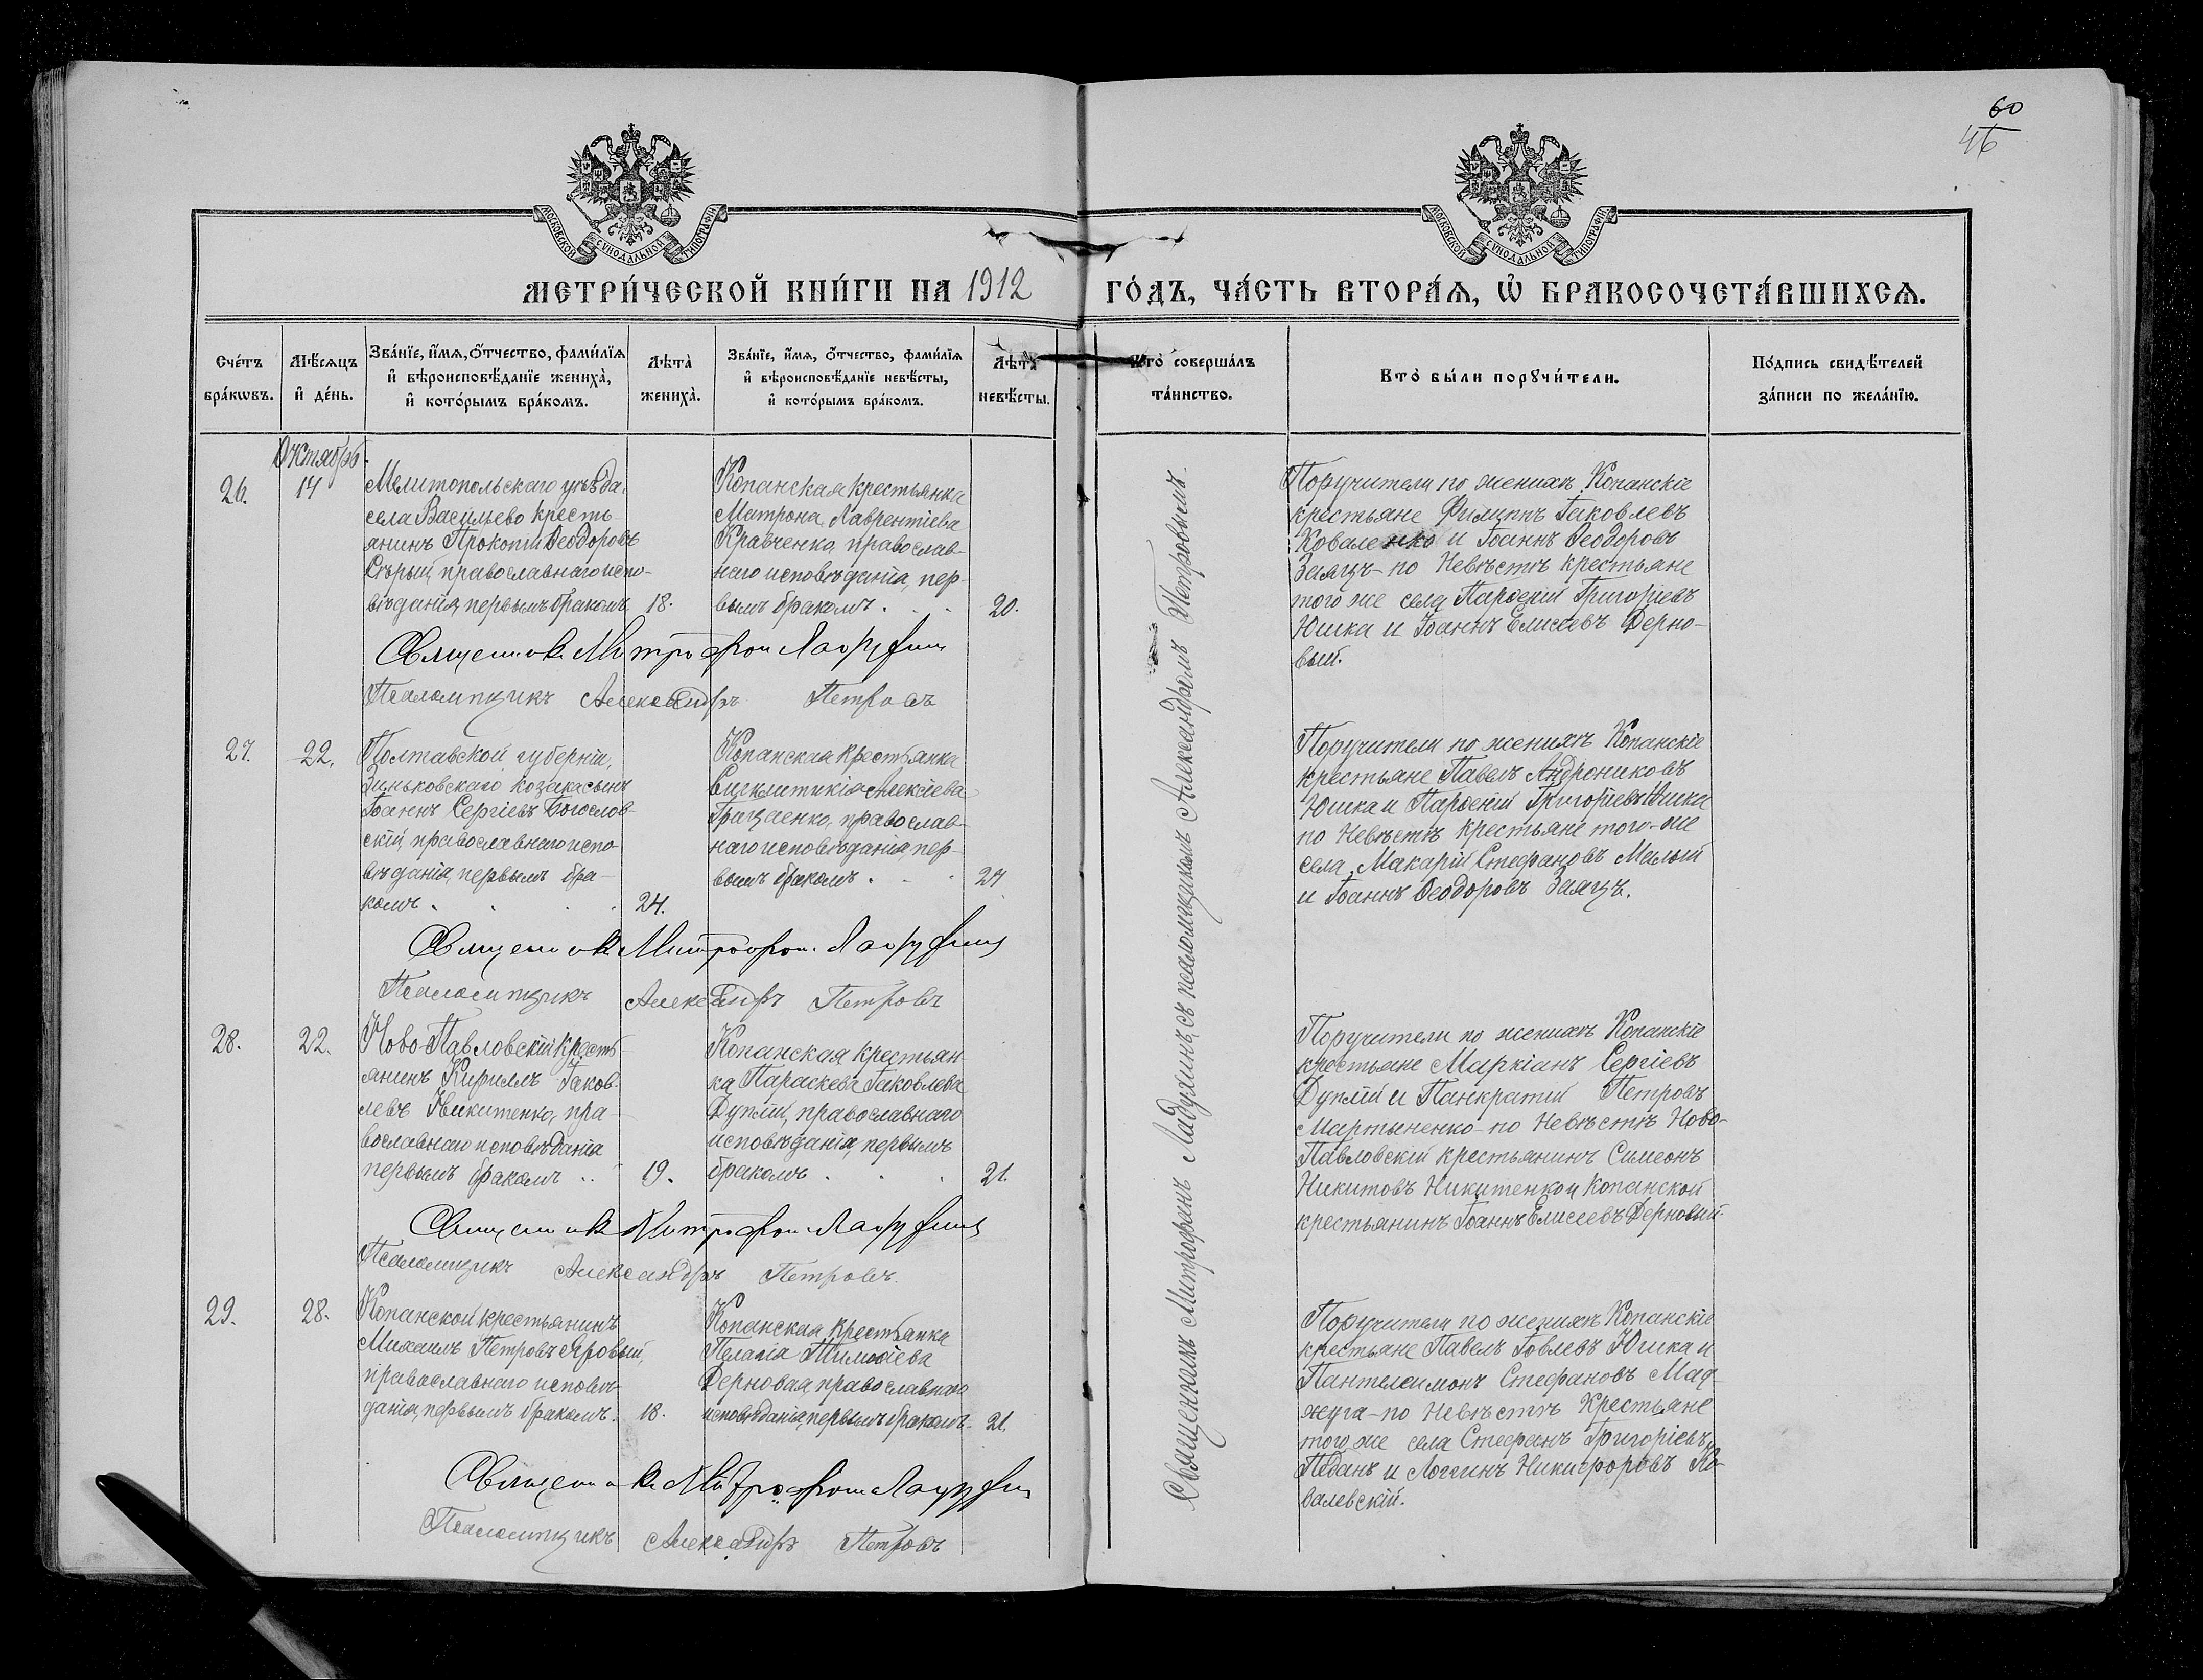 60
46
МОСКОВСКОЙ СѴНОДАЛЬНОЙ ТИПОГРАФІИ
МОСКОВСКОЙ СѴНОДАЛЬНОЙ ТИПОГРАФІИ
МЕТРИ́ЧЕСКОЙ КНИ́ГИ НА 1912 ГО́ДЪ, ЧА́СТЬ ВТОРА́Я, Ѡ҆ БРАКОСОЧЕТА́ВШИХСѦ.
Сче́тъ
бра́кѡвъ.
Мѣ́сяцъ
и҆ де́нь.
Зва́нїе, и҆́мя, ѻ҆́тчество, фами́лїя
и҆ вѣроисповѣ́данїе жениха̀,
и҆ кото́рымъ бра́комъ.
Лѣ́та̀
жениха̀.
Зва́нїе, и҆́мя, ѻ҆́тчество, фами́лїя
и҆ вѣроисповѣ́данїе невѣ́сты,
и҆ кото́рымъ бра́комъ.
Лѣ́та̀
невѣ́сты.
Кто̀ соверша́лъ
та́инство.
Кто̀ бы́ли порꙋчи́тели.
По́дпись свидѣ́телей
за́писи по жела́нїю.
Октябрь.
26.
14
Мелитопольскаго уѣзда,
села Васильево кресть-
янинъ Прокопій Ѳеодоровъ
Сѣрый, православнаго испо-
вѣданія, первымъ бракомъ
18.
Копанская крестьянка
Матрона Лаврентіева
Кравченко, православ-
наго исповѣданія, пер-
вымъ бракомъ . . .
20.
Поручители по женихѣ Копанскіе
крестьяне Филиппъ Іаковлевъ
Коваленко и Іоаннъ Ѳеодоровъ
Заяцъ - по Невѣстѣ крестьяне
того же села Парѳеній Григоріевъ
Юшка и Іоаннъ Елисеевъ Дерно-
вый.
Священникъ Митрофанъ
Псаломщикъ Александръ Петровъ
27.
22.
Полтавской губерніи,
Зиньковскаго козака сынъ
Іоаннъ Сергіевъ Богослов-
скій, православнаго испо-
вѣданія, первымъ бра-
комъ . . . .
24.
Копанская крестьянка
Сигклитикія Алексіева
Грицаенко, православ-
наго исповѣданія, пер-
вымъ бракомъ . . .
Поручители по женихѣ Копанскіе
крестьяне Павелъ Андрониковъ
Юшка и Парѳеній Григоріевъ Юшка
по Невѣстѣ крестьяне того-же
села, Макарій Стефановъ Малый
и Іоаннъ Ѳеодоровъ Заяцъ.
Священникъ Митрофанъ
Псаломщикъ Александръ Петровъ
28.
22.
Ново-Павловскій кресть-
янинъ Кириллъ Іаков-
левъ Никитенко, пра-
вославнаго исповѣданія
первымъ бракомъ . .
19.
Копанская крестьян-
ка Параскева Іаковлева
Дуплій, православнаго
исповѣданія, первымъ
бракомъ . . .
21.
Поручители по женихѣ Копанскіе
крестьяне Маркіанъ Сергіевъ
Дуплій и Панкратій Петровъ
Мартыненко - по Невѣстѣ Ново-
Павловскій крестьянинъ Симеонъ
Никитовъ Никитенко и Копанской
крестьянинъ Іоаннъ Елисеевъ Дерновый.
Священникъ Митрофанъ
Псаломщикъ Александръ Петровъ.
29.
28.
Копанской крестьянинъ
Михаилъ Петровъ Яровый,
православнаго исповѣ-
данія, первымъ бракомъ.
18.
Копанская крестьянка
Пелагія Тимоѳіева
Дерновая, православнаго
исповѣданія, первымъ бракомъ.
21.
Поручители по женихѣ Копанскіе
крестьяне Павелъ Іовлевъ Юшка и
Пантелеимонъ Стефановъ Мад-
жуга - по Невѣстѣ Крестьяне
того же села Стефанъ Григоріевъ
Педанъ и Логгинъ Никифоровъ Ко-
валевскій.
Священникъ Митрофанъ
Псаломщикъ Александръ Петровъ
Священникомъ Митрофаномъ съ псаломщикомъ Александромъ Петровымъ.